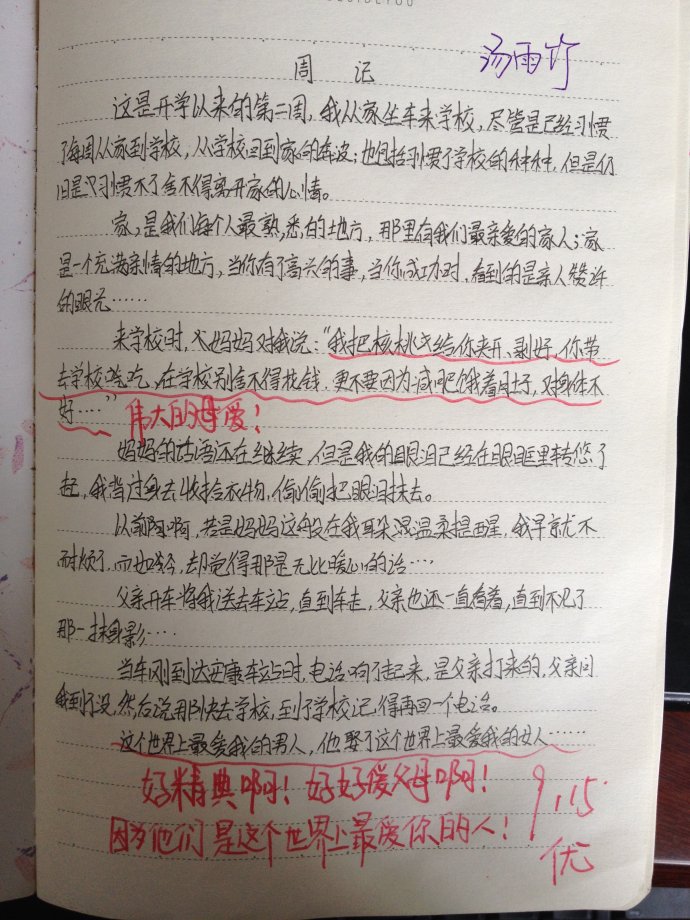 周 记
汤雨竹
这是开学以来的第二周，我从家坐车来学校，尽管是已经习惯
了每周从家到学校，从学校回到家的奔波；也包括习惯了学校的种种，但是仍
旧是习惯不了舍不得离开家的心情。
家，是我们每个人最熟悉的地方，那里有我们最亲爱的家人；家
是一个充满亲情的地方，当你有了高兴的事，当你成功时，看到的是亲人赞许
的眼光……
来学校时，妈妈对我说：“我把核桃给你夹开、剥好，你带
去学校吃，在学校别舍不得花钱，更不要因为减肥饿着肚子，对身体不
好……”
伟大的母爱！
妈妈的话语还在继续，但是我的眼泪已经在眼眶里转悠了
起，我背过身去收拾衣物，偷偷把眼泪抹去。
以前啊啊，若是妈妈这般在我耳朵温柔提醒，我早就不
耐烦了，而如今，却觉得那是无比暖心的话…
父亲开车将我送去车站，直到车走，父亲也还一直看着，直到不见了
那一抹身影…
当车刚到达安康车站时，电话响了起来，是父亲打来的，父亲问
我到了没，然后说那快去学校，到了学校记得再回一个电话。
这个世界上最爱我的男人，他娶了这个世界上最爱我的女人……
好精典啊！好好爱父母啊！
因为他们是这个世界上最爱你的人！
9.15
优